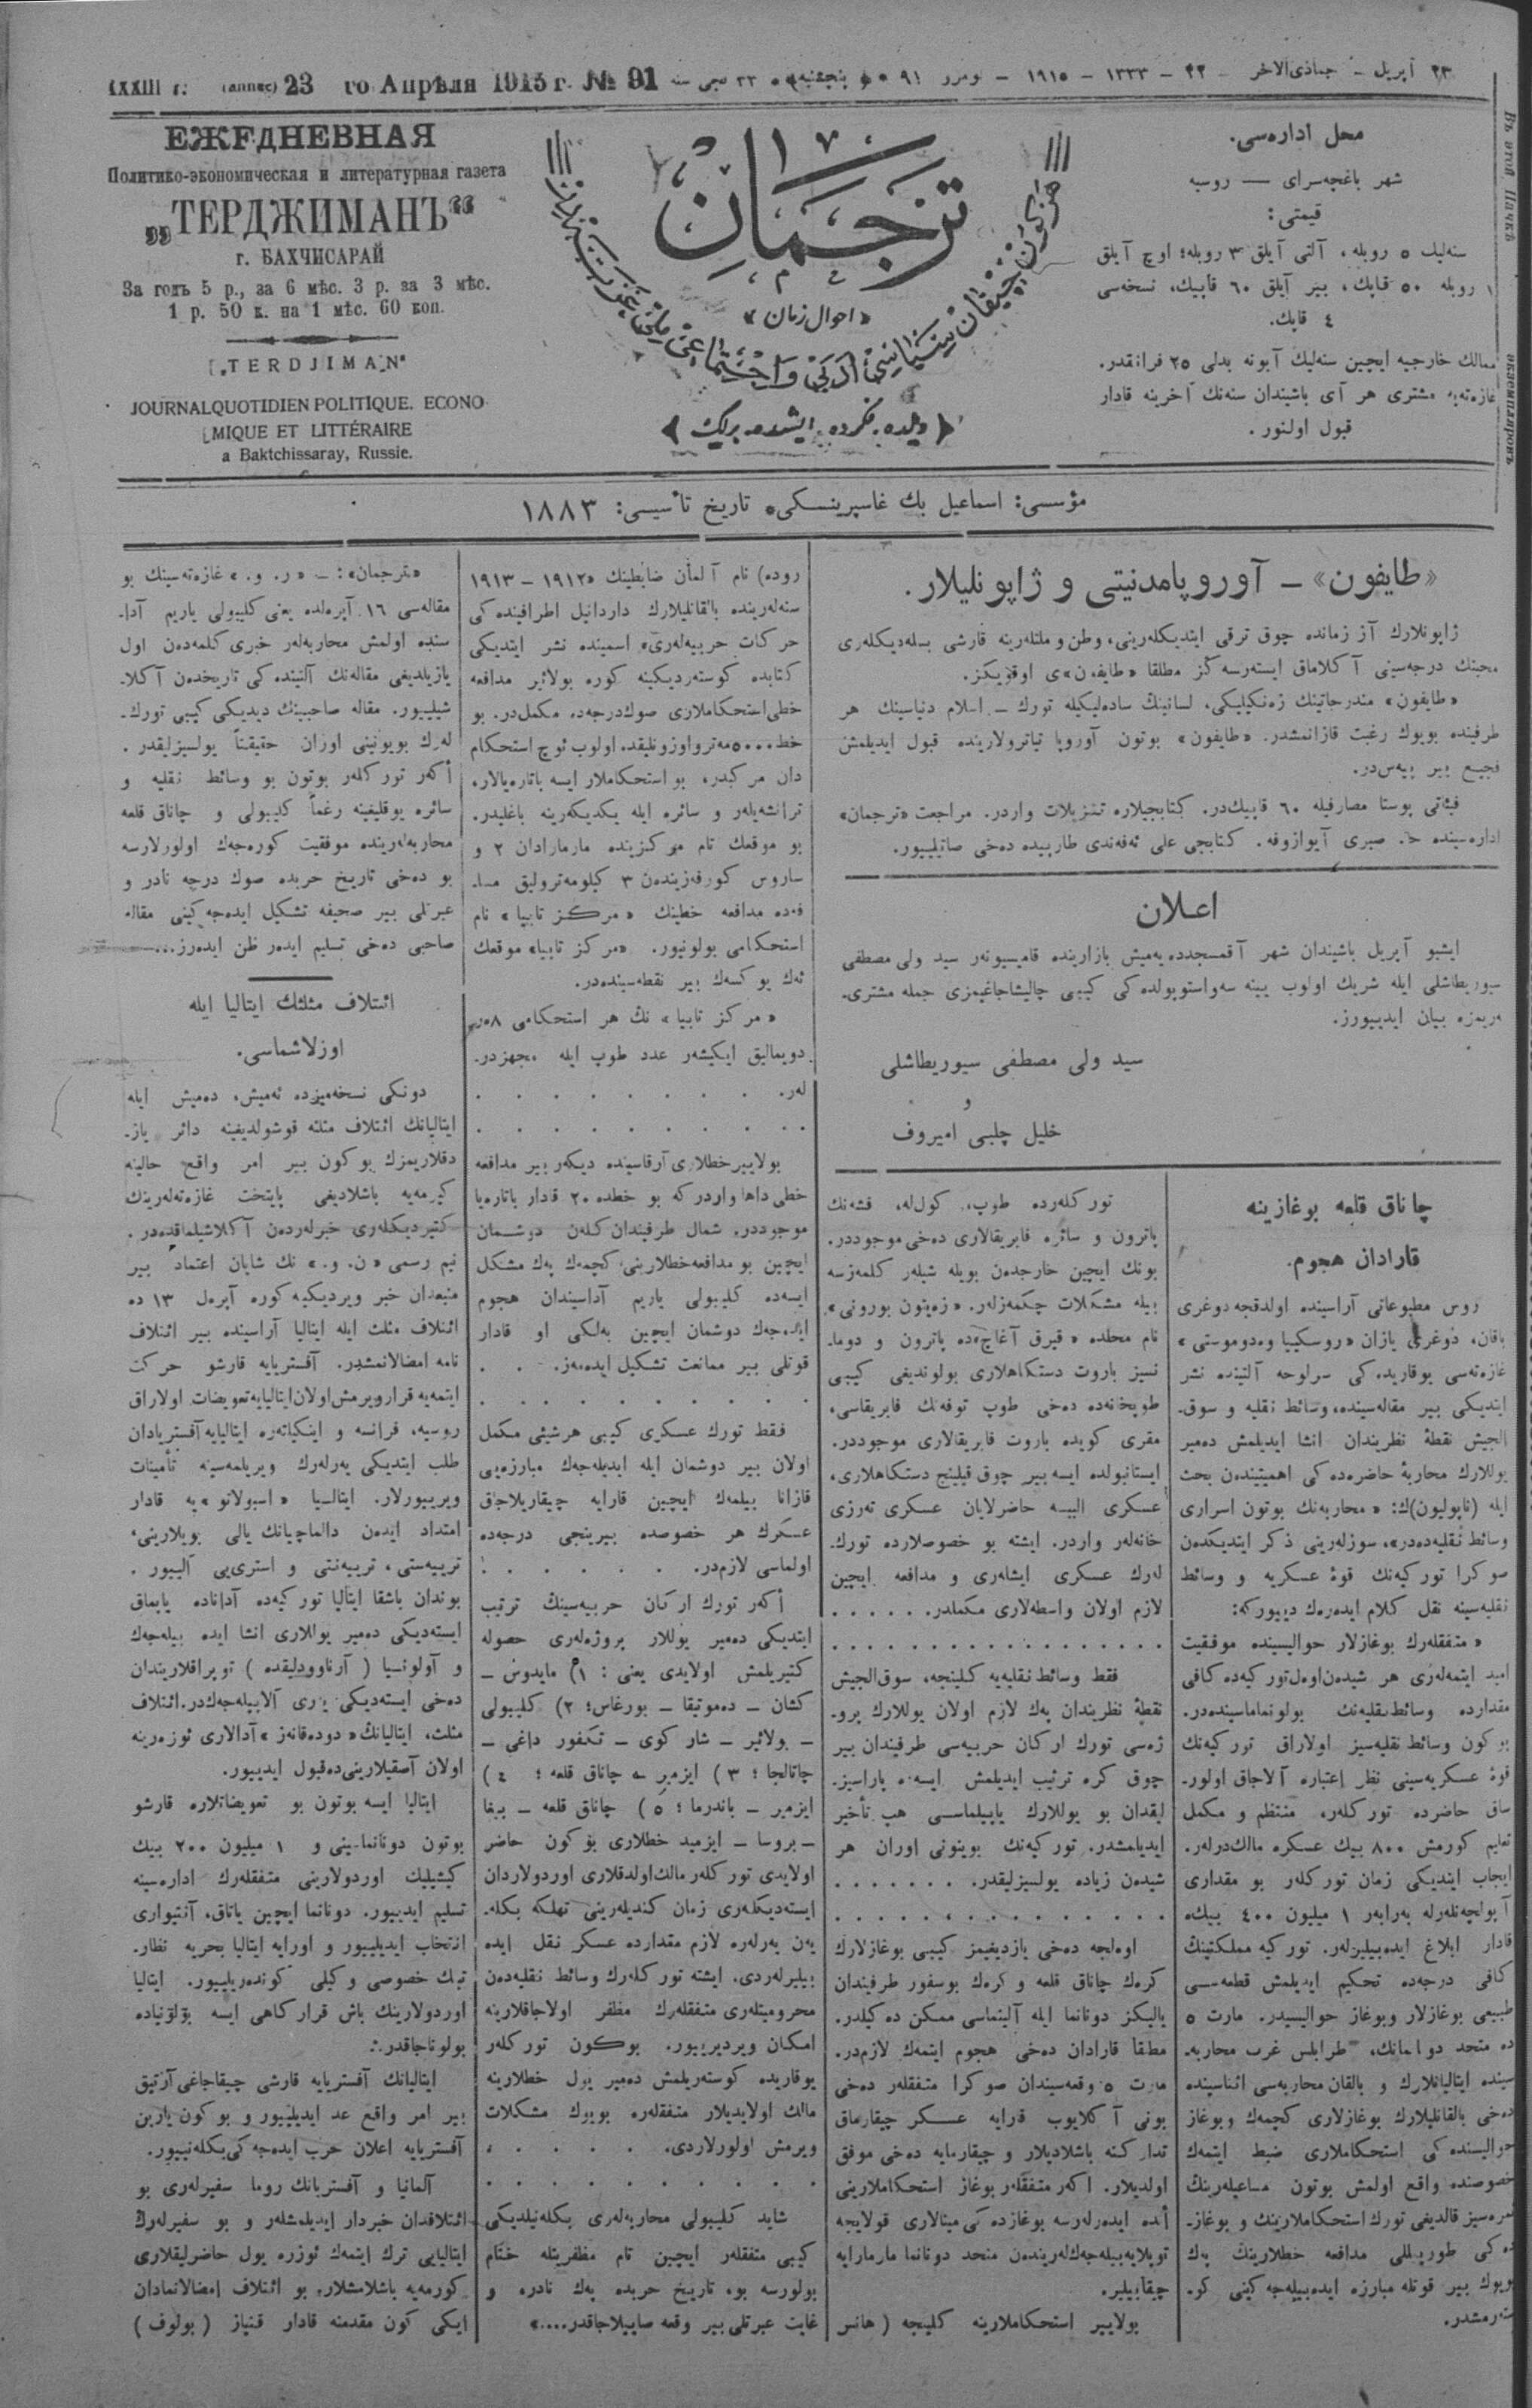 ٢٣ آپریل – جماذی‌الاخر – ٢٢ – ١٣٣٣ – ١٩١٥ – نومرو ٩١ پنجشنبه ٣٣ نجی سنه
(année) 23 го Апрѣля 1915 г. № 91
ЕЖЕДНЕВНАЯ
Политико-экономическая и литературная газета
„ТЕРДЖИМАНЪ“
г. БАХЧИСАРАЙ
За годъ 5 р., за 6 мѣс. 3 р. за 3 мѣс.
1 р. 50 к. на 1 мѣс. 60 коп.
„TERDJIMAN“
JOURNAL QUOTIDIEN POLITIQUE. ECONO-
MIQUE ET LITTÉRAIRE
a Baktchissaray, Russie.
ترجمان
«احوال زمان»
«دیلده، فکرده، ایشده، برلك»
محل اداره‌سی.
شهر باغچه‌سرای — روسیه
قیمتی:
سنه‌لیك ٥ روبله، آلتی آیلق ٣ روبله؛ اوچ آیلق
١ روبله ٥٠ قاپك، بیر آیلق ٦٠ قاپیك، نسخه‌سی
٤ قاپك.
ممالك خارجیه ایچین سنه‌لیك آبونه بدلی ٢٥ فرانقدر.
غازه‌ته‌یه مشتری هر آی باشیندان سنه‌نك آخرینه قادار
قبول اولنور.
مؤسسی: اسماعیل بك غاسپرینسكی • تاریخ تأسیسی: ١٨٨٣
«طایفون» – آوروپا مدنیتی و ژاپونلیلار.
ژاپونلارك آز زمانده چوق ترقی ایتدیكلرینی، وطن و ملتلرینه قارشی بسله‌دیكله‌ری
محبتك درجه‌سینی آكلاماق ایسته‌رسه‌ڭز مطلقا «طایفون»ی اوقوڭز.
«طایفون» مندرجاتینك زه‌نگیلیگی، لسانینڭ ساده‌لیگیله تورك – اسلام دنیاسینك هر
طرفینده بویوك رغبت قازانمشدر. «طایفون» بوتون آوروپا تیاترولارینده قبول ایدیلمش
فجیع بیر پیه‌س‌در.
فیئاتی پوستا مصارفیله ٦٠ قاپیك‌در. كتابجیلاره تنزیلات واردر. مراجعت «ترجمان»
اداره‌سینده ح. صبری آیوازوفه. كتابجی علی ئه‌فه‌ندی طارپیده دخی صاتیلییور.
اعلان
ایشبو آپریل باشیندان شهر آقمسجدده یه‌میش بازارینده قامیسیونه‌ر سید ولی مصطفی
سیوریطاشلی ایله شریك اولوب یینه سه‌واستوپولده‌كی كیبی چالیشاجاغیمزی جمله مشتری-
له‌ریمزه بیان ایدییورز.
سید ولی مصطفی سیوریطاشلی
و
خلیل چلبی امیروف
چاناق قلعه بوغازینه
قارادان هجوم.
روس مطبوعاتی آراسینده اولدقجه دوغری
باقان، دوغری یازان «روسكییا وه‌دوموستی»
غازه‌ته‌سی یوقاریده‌كی سرلوحه آلتینده نشر
ایتدیكی بیر مقاله‌سینده، وسائط نقلیه و سوق-
الجیش نقطهٔ نظریندان انشا ایدیلمش ده‌میر
یوللارك محاربهٔ حاضره‌ده‌كی اهمیتیندن بحث
ایله (ناپولیون)ك: «محاربه‌نك بوتون اسراری
وسائط نقلیه‌ده‌در»، سوزله‌رینی ذكر ایتدیكدن
صوكرا توركیه‌نك قوهٔ عسكریه و وسائط
نقلیه‌سینه نقل كلام ایده‌رك دییوركه:
«متفقله‌رك بوغازلار حوالیسینده موفقیت
امید ایتمه‌له‌ری هر شیدن اول توركیه‌ده كافی
مقدارده وسائط نقلیه‌نك بولونماماسینده‌در.
بوكون وسائط نقلیه‌سیز اولاراق توركیه‌نك
قوهٔ عسكریه‌سینی نظر اعتباره آلاجاق اولور-
ساق حاضرده توركلر، منتظم و مكمل
تعلیم كورمش ٨٠٠ بیك عسكره مالك‌درلر.
ایجاب ایتدیكی زمان توركلر بو مقداری
آبولچه‌نلرله برابر ١ میلیون ٤٠٠ بیكه
قادار ابلاغ ایده‌بیلیرلر. توركیه مملكتینڭ
كافی درجه‌ده تحكیم ایدیلمش قطعه‌سی
طبیعی بوغازلار و بوغاز حوالیسیدر. مارت ٥
ده متحد دونانمانك، طرابلس غرب محاربه-
سینده ایتالیانلارك و بالقان محاربه‌سی اثناسینده
دخی بالقانلیلارك بوغازلاری كچمك و بوغاز
حوالیسنده‌كی استحكاملاری ضبط ایتمك
خصوصنده واقع اولمش بوتون مساعیله‌رینڭ
ثمره‌سیز قالدیغی تورك استحكاملارینك و بوغاز-
ده‌كی طورپیللی مدافعه خطلارینڭ پك
بویوك بیر قوتله مبارزه ایده‌بیله‌جه‌كینی كو-
سترمشدر.
توركلرده طوپ، كولله، فشه‌نك
پاترون و سائره فابریقالاری دخی موجوددر.
بونك ایچین خارجدن بویله شیلر كلمه‌زسه
بیله مشكلات چكمه‌زلر. «زه‌یتون بورونی»
نام محلده «قیرق آغاج»ده پاترون و دوما-
نسیز باروت دستكاهلاری بولوندیغی كیبی
طوپخانه‌ده دخی طوپ توفه‌نك فابریقاسی،
مقری كویده باروت فابریقالاری موجوددر.
ایستانبولده ایسه بیر چوق قیلینج دستكاهلاری،
عسكری البیسه حاضرلایان عسكری ته‌رزی
خانه‌لر واردر. ایشته بو خصوصلارده تورك-
له‌رك عسكری ایشله‌ری و مدافعه ایچین
لازم اولان واسطه‌لاری مكملدر. . . . . .
. . . . . . . . . . . . . . . .
فقط وسائط نقلیه‌یه كلینجه، سوق‌الجیش
نقطهٔ نظریندان پك لازم اولان یوللارك پرو-
ژه‌سی تورك اركان حربیه‌سی طرفیندان بیر
چوق كره ترتیب ایدیلمش ایسه‌ده پاراسیز-
لیقدان بو یوللارك یاپیلماسی هپ تأخیر
ایدیلمشدر. توركیه‌نك بوینونی اوران هر
شیدن زیاده یولسیزلیقدر. . . . . . . .
. . . . . . . . . . . . . . .
اولجه دخی یازدیغیمز كیبی بوغازلارك
كرك چاناق قلعه و كرك بوسفور طرفیندان
یالیكز دونانما ایله آلینماسی ممكن ده‌كیلدر.
مطلقا قارادان دخی هجوم ایتمك لازم‌در.
مارت ٥ وقعه‌سیندان صوكرا متفقلر دخی
بونی آكلایوب قارایه عسكر چیقارماق
تداركنه باشلادیلار و چیقارمایه دخی موفق
اولدیلار. اكر متفقلر بوغاز استحكاملارینی
ألده ایدرلرسه بوغازده‌كی مینالاری قولایجه
توپلایه‌بیله‌جه‌كله‌ریندن متحد دونانما مارمارایه
چیقابیلیر.
بولاییر استحكاملارینه كلینجه (هانس
روده) نام آلمان ضابطینك «١٩١٢ – ١٩١٣
سنه‌لرینده بالقانلیلارك داردانیل اطرافینده‌كی
حركات حربیه‌له‌ری» اسمینده نشر ایتدیكی
كتابده كوسته‌ردیكینه كوره بولایر مدافعه
خطی استحكاملاری صوك درجه‌ده مكمل‌در. بو
خط ٥٠٠٠ مه‌ترو اوزونلیقده اولوب ئوچ استحكام
دان مركبدر، بو استحكاملار ایسه باتاره‌یالار،
ترانشه‌یلر و سائره ایله یكدیكه‌رینه باغلیدر.
بو موقعك تام مركزینده مارمارادان ٢ و
ساروس كورفه‌زیندن ٣ كیلومه‌ترولیق مسا-
فه‌ده مدافعه خطینك «مركز تاپیا» نام
استحكامی بولونیور. «مركز تاپیا» موقعك
ئه‌ك یوكسك بیر نقطه‌سینده‌در.
«مركز تاپیا» نڭ هر استحكامی ٨ه‌ر
دویمالیق ایكیشر عدد طوپ ایله مجهزدر.
لر. . . . . . . . . .
. . . . . . . . . .
بولاییر خطلاری آرقاسینده دیكر بیر مدافعه
خطی داها واردر كه بو خطده ٢٠ قادار باتاره‌یا
موجوددر. شمال طرفیندان كلن دوشمان
ایچین بو مدافعه خطلارینی كچمك پك مشكل
ایسه‌ده كلیبولی یاریم آداسیندان هجوم
ایده‌جك دوشمان ایچین بلكی او قادار
قوتلی بیر ممانعت تشكیل ایده‌مز. . . .
. . . . . . . . . .
فقط تورك عسكری كیبی هرشیئی مكمل
اولان بیر دوشمان ایله ایدیله‌جك مبارزه‌یی
قازانا بیلمك ایچین قارایه چیقاریلاجاق
عسكرك هر خصوصده بیرینجی درجه‌ده
اولماسی لازم‌در. . . . . . .
أكر تورك اركان حربیه‌سینڭ ترتیب
ایتدیكی ده‌میر یوللار پروژه‌له‌ری حصوله
كتیریلمش اولایدی یعنی: ١) مایدوس –
كشان – ده‌موتیقا – بورغاس؛ ٢) كلیبولی
– بولائیر – شاركوی – تكفور داغی –
چاتالجا؛ ٣) ایزمیر – چاناق قلعه؛ ٤)
ایزمیر – باندرما؛ ٥) چاناق قلعه – بیغا
– بروسا – ایزمید خطلاری بوكون حاضر
اولایدی توركلر مالك اولدقلاری اوردولاردان
ایسته‌دیكله‌ری زمان كندیله‌رینی تهلكه بكله-
ین یرلره لازم مقدارده عسكر نقل ایده
بیلیرلردی. ایشته توركله‌رك وسائط نقلیه‌دن
محرومیتله‌ری متفقله‌رك مظفر اولاجاقلارینه
امكان ویردیرییور. بوكون توركلر
یوقاریده كوستریلمش ده‌میر یول خطلارینه
مالك اولایدیلار متفقلره بویوك مشكلات
ویرمش اولورلاردی. . . . . .
. . . . . . . . . .
شاید كلیبولی محاربه‌له‌ری بكله‌نیلدیكی
كیبی متفقلر ایچین تام مظفریتله ختام
بولورسه بو، تاریخ حربده پك نادره و
غایت عبرتلی بیر وقعه صاییلاجاقدر....»
«ترجمان»: – «ر. و.» غازه‌ته‌سینك بو
مقاله‌سی ١٦ آپره‌لده یعنی كلیبولی یاریم آدا-
سنده اولمش محاربه‌لر خبری كلمه‌دن اول
یازیلدیغی مقاله‌نك آلتینده‌كی تاریخدن آكلا-
شیلییور. مقاله صاحبینك دیدیكی كیبی تورك-
له‌رك بویونینی اوران حقیقتاً یولسیزلیقدر.
أكر توركلر بوتون بو وسائط نقلیه و
سائره یوقلیغینه رغماً كلیبولی و چاناق قلعه
محاربه‌له‌رینده موفقیت كوره‌جك اولورلارسه
بو دخی تاریخ حربده صوك درجه نادر و
عبرتلی بیر صحیفه تشكیل ایده‌جه‌كینی مقاله
صاحبی دخی تسلیم ایدر ظن ایده‌رز...
ائتلاف مثلثك ایتالیا ایله
اوزلاشماسی.
دونكی نسخه‌میزده ئه‌میش، ده‌میش ایله
ایتالیانك ائتلاف مثلثه قوشولدیغینه دائر یاز-
دقلاریمزك بوكون بیر امر واقع حالینه
كیرمه‌یه باشلادیغی پایتخت غازه‌ته‌له‌رینك
كتیردیكله‌ری خبرلردن آكلاشیلماقده‌در.
نیم رسمی «ن. و.» نك شایان اعتماد بیر
منبعدان خبر ویردیكیه كوره آپره‌ل ١٣ ده
ائتلاف مثلث ایله ایتالیا آراسینده بیر ائتلاف
نامه امضالانمشدر. آفستریایه قارشو حركت
ایتمه‌یه قرار ویرمش اولان ایتالیایه تعویضات اولاراق
روسیه، فرانسه و اینكلتره ایتالیایه آفستریادان
طلب ایتدیكی یه‌رله‌رك ویریلمه‌سینه تأمینات
ویرییورلار. ایتالیا «اسپولاتو»یه قادار
امتداد ایدن دالماچیانك یالی بویلارینی،
ترییه‌ستی، ترییه‌نتی و استریی آلییور.
بوندان باشقا ایتالیا توركیه‌ده آداناده یاپماق
ایسته‌دیكی ده‌میر یوللاری انشا ایده بیله‌جك
و آولونسیا (آرناوودلیقده) توپراقلاریندان
دخی ایسته‌دیكی یری آلابیله‌جك‌در. ائتلاف
مثلث، ایتالیانك «دوده‌قانه‌ز» آدالاری ئوزه‌رینه
اولان آصقیلارینی ده قبول ایدییور.
ایتالیا ایسه بوتون بو تعویضاتلاره قارشو
بوتون دونانماسینی و ١ میلیون ٢٠٠ بیك
كیشیلیك اوردولارینی متفقله‌رك اداره‌سینه
تسلیم ایدییور. دونانما ایچین یاتاق، آنتیواری
انتخاب ایدیلییور و اورایه ایتالیا بحریه نظار-
تینك خصوصی وكیلی كونده‌ریلییور. ایتالیا
اوردولارینك باش قراركاهی ایسه بولونیاده
بولوناجاقدر.
ایتالیانك آفستریایه قارشی چیقاجاغی آرتیق
بیر امر واقع عد ایدیلییور و بوكون یارین
آفستریایه اعلان حرب ایده‌جه‌كی بكله‌نییور.
آلمانیا و آفستریانك روما سفیرله‌ری بو
ائتلافدان خبردار ایدیلمشلر و بو سفیرله‌رك
ایتالیایی ترك ایتمك ئوزره یول حاضرلیقلاری
كورمه‌یه باشلامشلار. بو ائتلاف امضالانمادان
ایكی كون مقدمنه قادار قنیاز (بولوف)